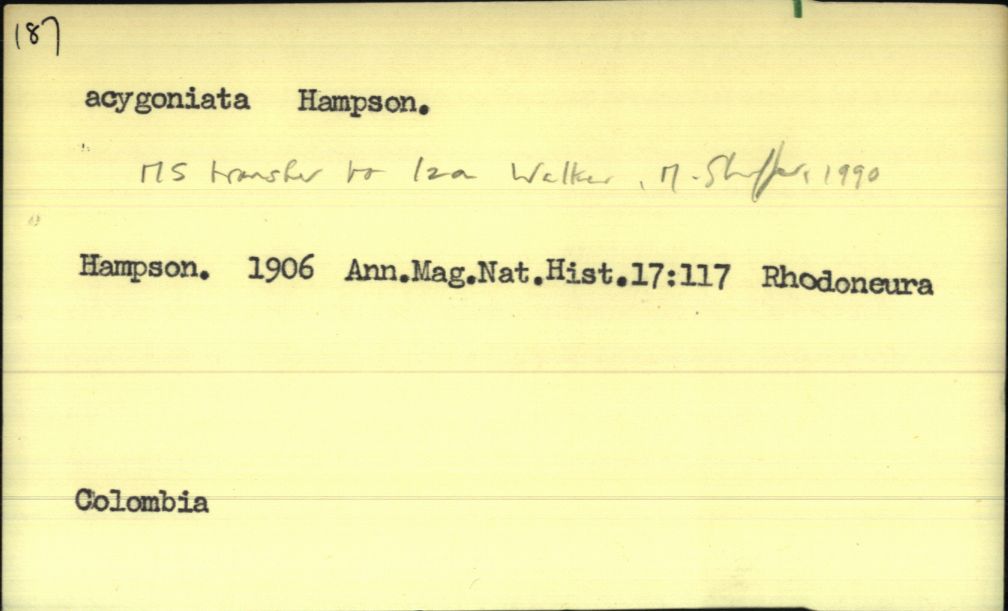 187
acygoniata Hampson.
MS transfer to Iza Walker, M. Shaffer, 1990
Hampson. 1906 Ann.Mag.Nat.Hist.17:117 Rhodoneura
Colombia